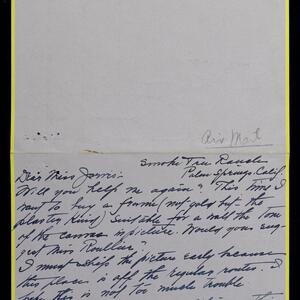 Air Mail
Smoke Tree Ranch
Palm Springs, Calif.
Dear Miss Jarvis:
Will you help me again? This time I
want to buy a frame (not gold but the
plaster kind) suitable for a with the tone
of the canvas in picture. Would you sug-
gest Miss Roullier?
I must ship the picture early because
this place is off the regular routes. I
hope this is not too much trouble